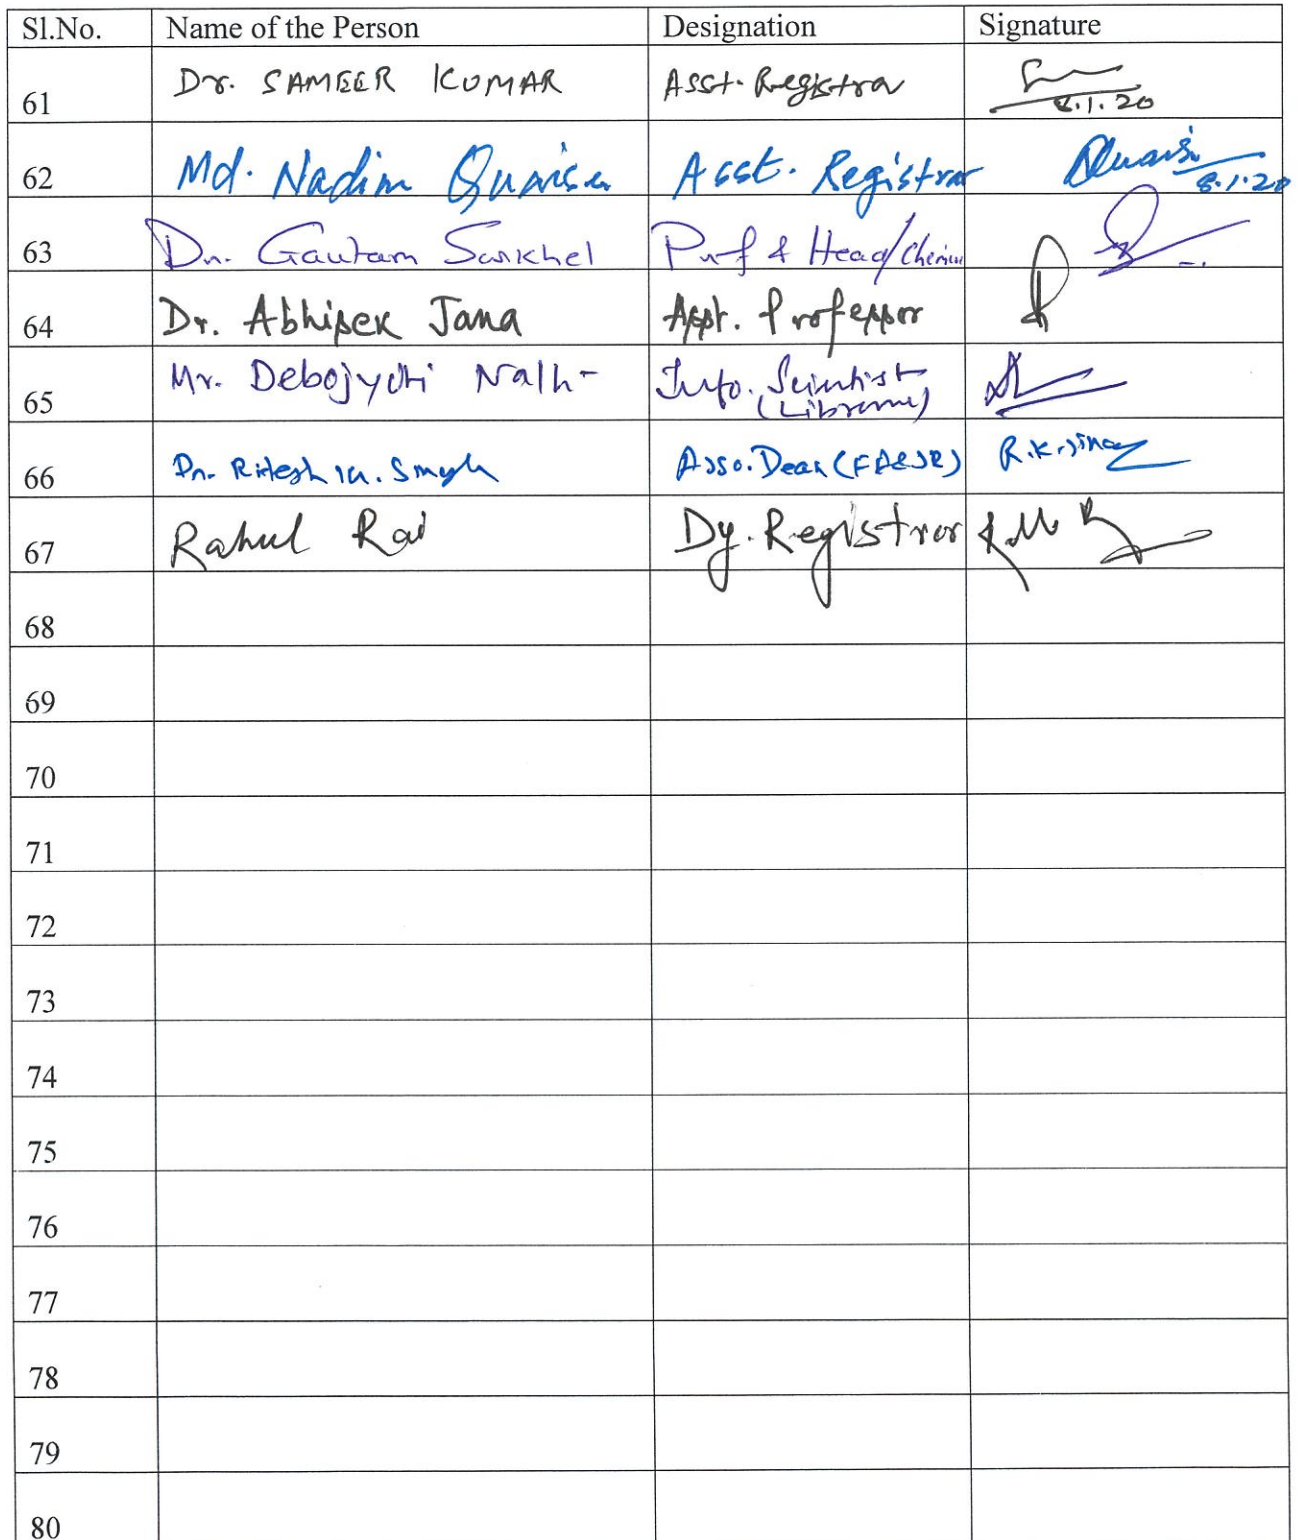 Sl.No. Name of the Person Designation Signature
61 Dr. SAMEER KUMAR Asst. Registrar 8.1.20
62 Md. Nadim Asst. Registrar 8.1.20
63 Dr. Gautam Sarkhel Prof & Head/
64 Dr. Abhisek Jana Asst. Professor
65 Mr. Debojyoti Nath Info. Scientist
66 Dr. Ritesh Kr. Singh Asso. Dean R.K.
67 Rahul Rai Dy. Registrar
68
69
70
71
72
73
74
75
76
77
78
79
80